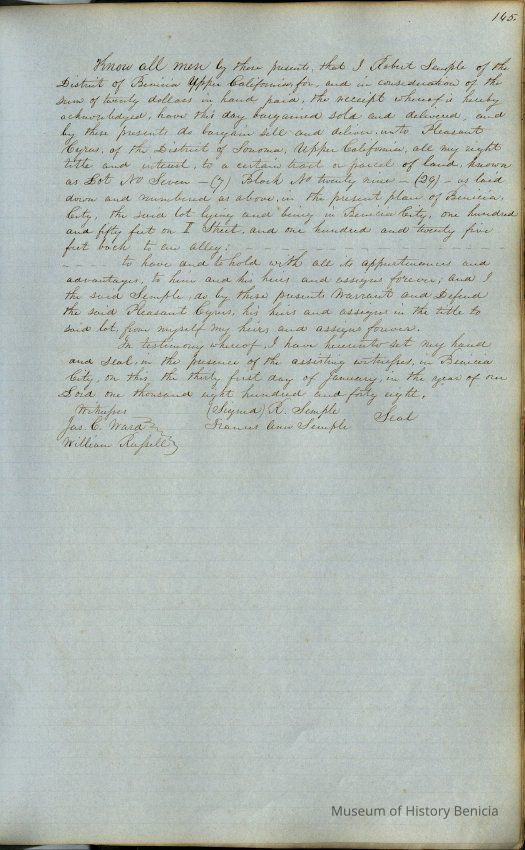 165.
Know all men by these presents, that I Robert Semple of the
District of Benicia Upper California, for, and in consideration of the
sum of twenty dollars in hand paid, the receipt whereof is hereby
acknowledged, have this day bargained sold and delivered, and
by these presents do bargain sell and deliver, unto Pleasant
Cyrus, of the District of Sonoma, Upper California, all my right
title and interest, to a certain tract or parcel of land, known
as Lot No Seven - (7) Block No twenty nine - (29) - as laid
down and numbered as above, in the present plan of Benicia
City, the said lot lying and being in Benicia City, one hundred
and fifty feet on I Street, and one hundred and twenty five
feet back to an alley:
to have and to hold with all its appurtenances and
advantages, to him and his heirs and assigns forever; and I
the said Semple, do by these presents Warrant and Defend
the said Pleasant Cyrus, his heirs and assigns in the title to
said lot, from myself my heirs and assigns forever.
In testimony whereof, I have hereunto set my hand
and Seal, in the presence of the assisting witnesses, in Benicia
City, on this, the thirty first day of January, in the year of our
Lord one thousand eight hundred and forty eight.
Witnesses (Signed) R. Semple
Jas. C. Ward Frances Ann Semple Seal
William Russell
Museum of History Benicia